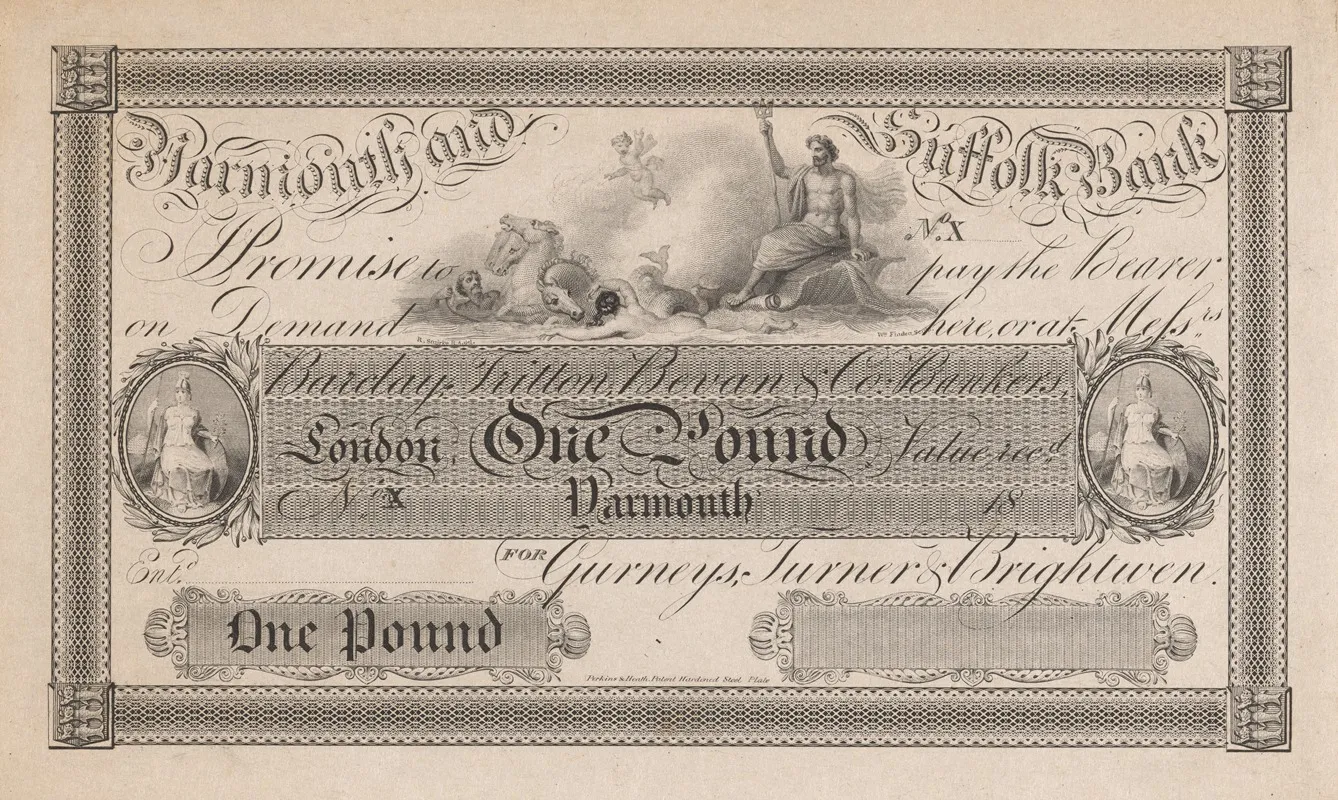 Yarmouth and Suffolk Bank
No. X
I Promise to pay the Bearer
on Demand here, or at Messrs.
Barclay, Tritton, Bevan & Co. Bankers,
London, One Pound Value recd.
No. X Yarmouth 18
Entd.
FOR Gurneys, Turner & Brightwen.
One Pound
Perkins & Heath, Patent Hardened Steel Plate